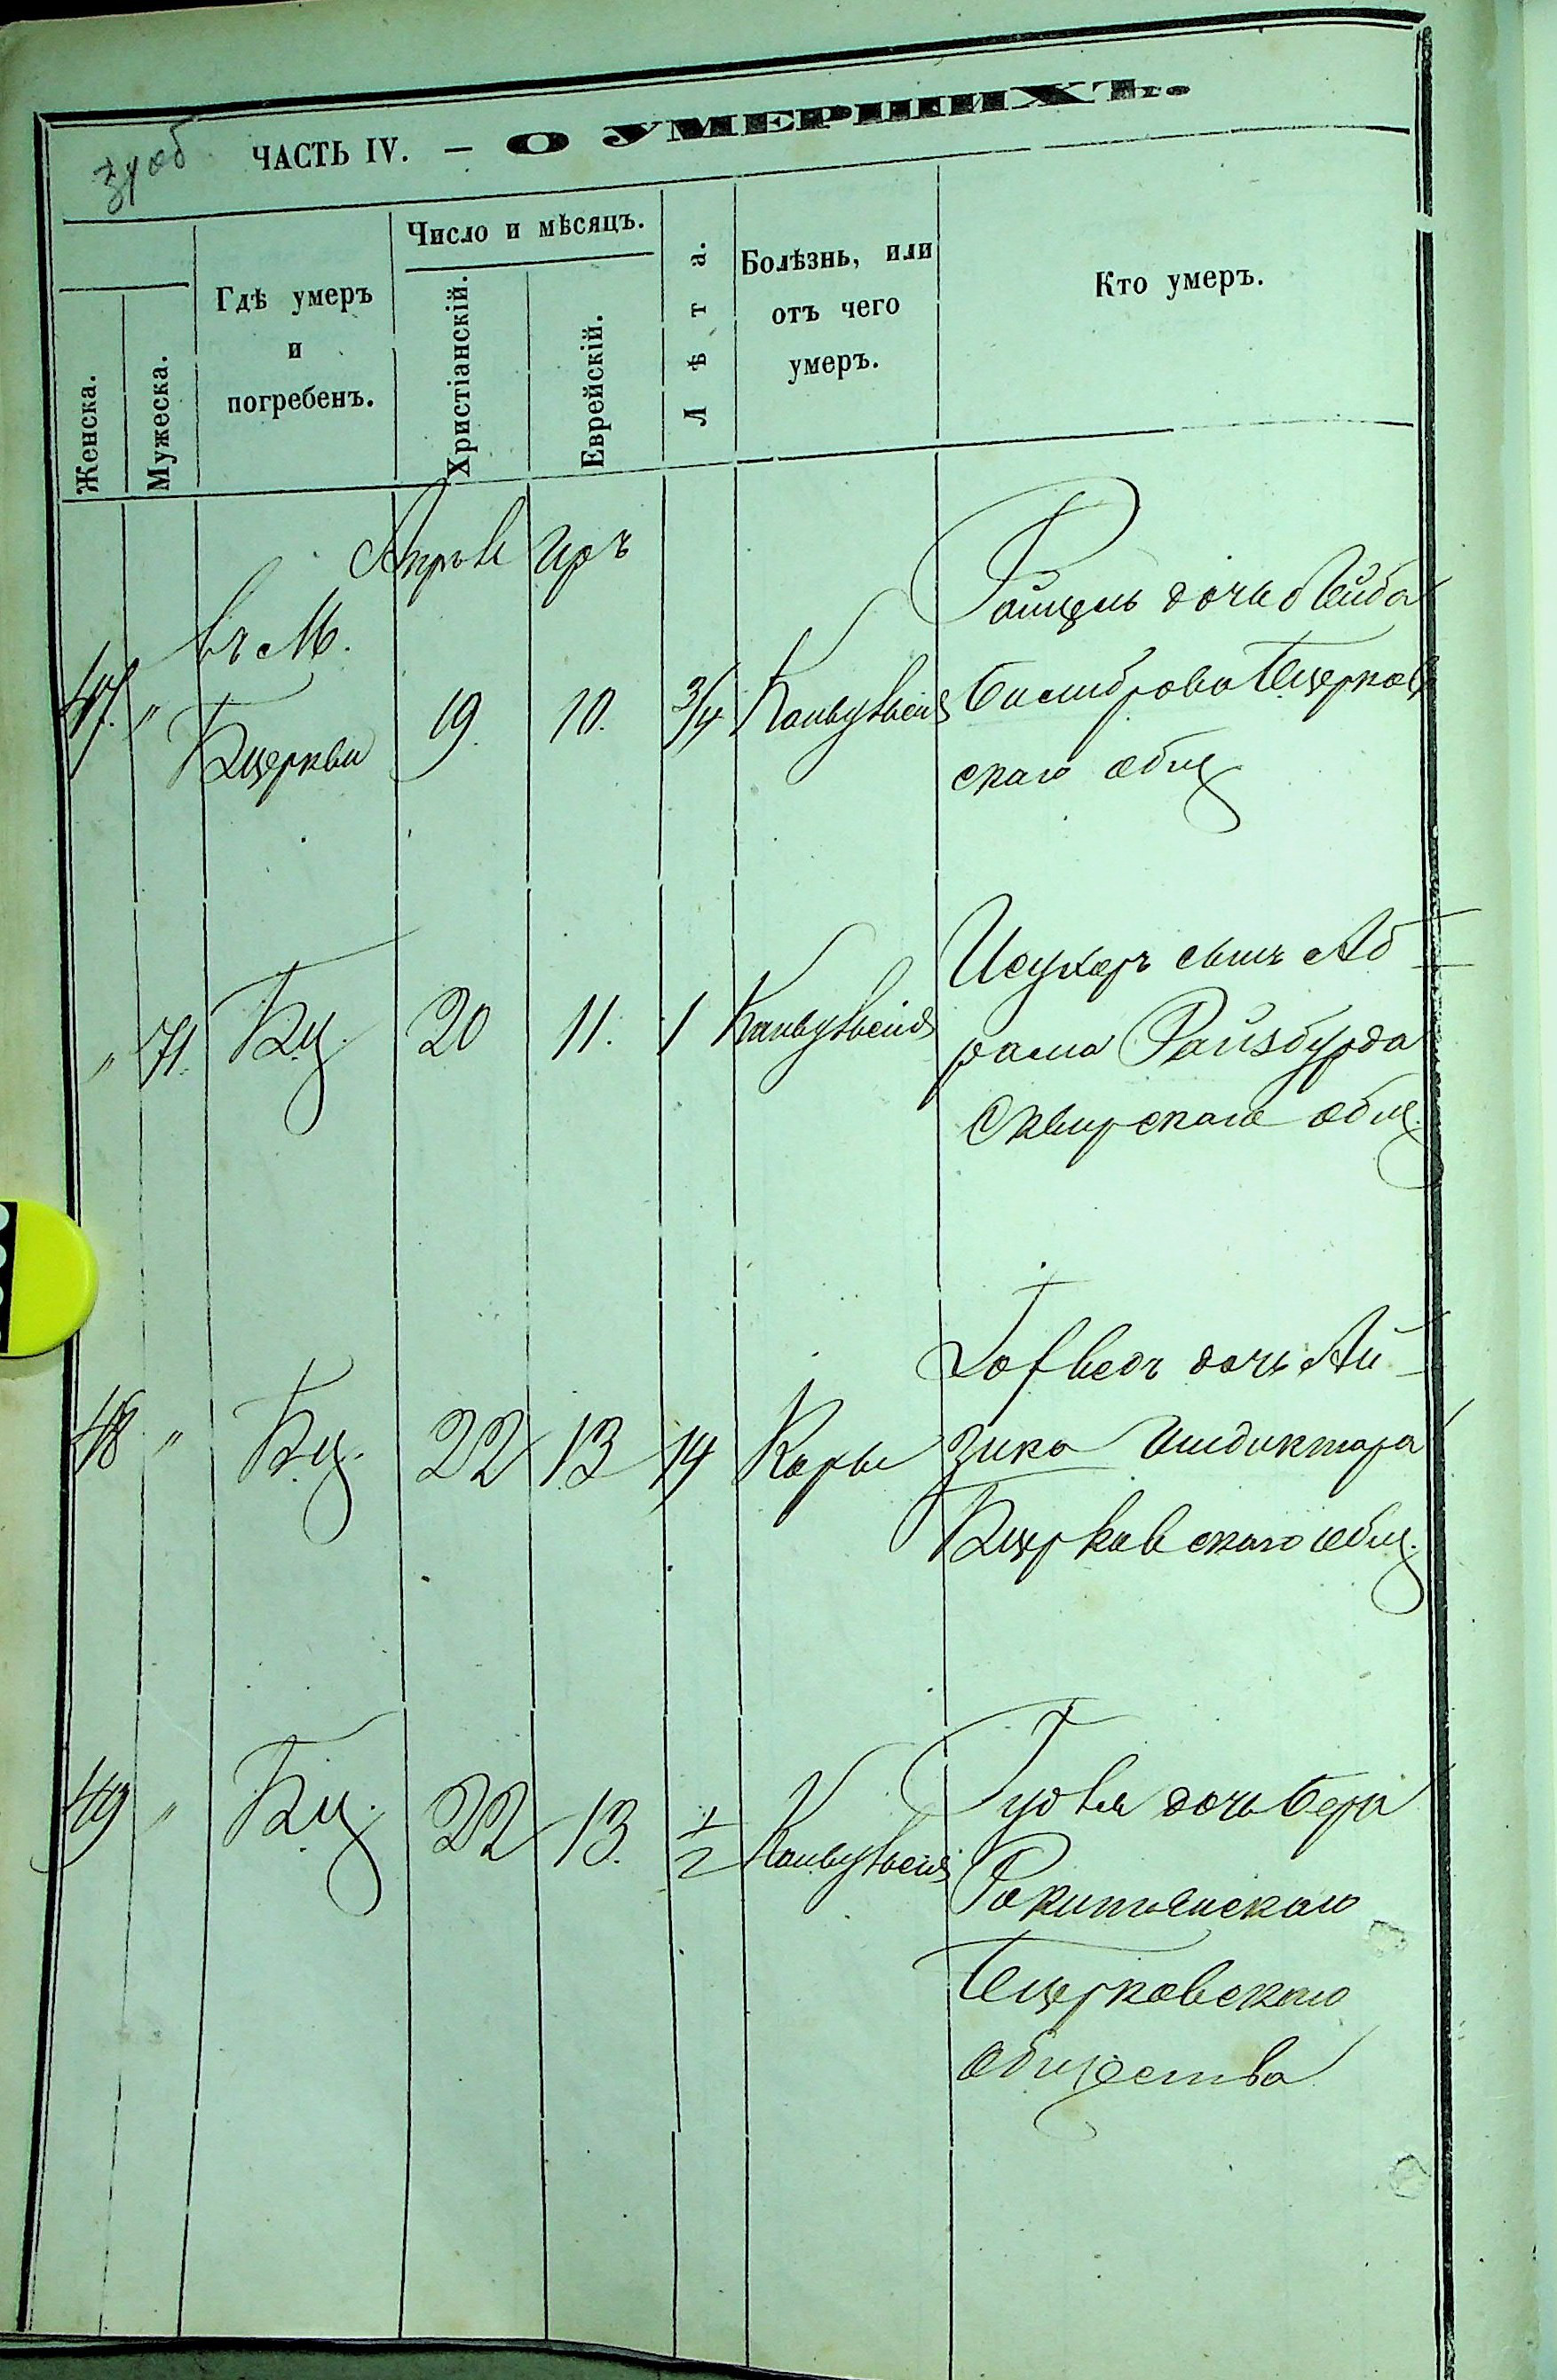 31 об
ЧАСТЬ IV. — О УМЕРШИХЪ.
Женска.
Мужеска.
Гдѣ умеръ
и
погребенъ.
Число и мѣсяцъ.
Христіанскій.
Еврейскій.
Лѣта.
Болѣзнь, или
отъ чего
умеръ.
Кто умеръ.
Апрель Иръ
47. " въ М. Бцеркви 19. 10. 3/4 Конвульсій
дочь Лейба
Бцерков
скаго общ
" 71. Бц. 20 11. 1 Конвульсій
Исухоръ сынъ Аб
рама Райзбурда
Сквирскаго общ.
48 " Бц. 22 13 14 Коры
дочь Ай
зика Индиктора
Бцерковскаго общ.
49 " Бц. 22 13. 1/2 Конвульсій
Гудля дочь Бера
Ракитянскаго
Бцерковскаго
общества